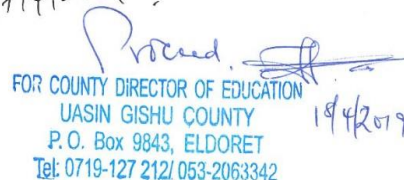 Proceed.
FOR COUNTY DIRECTOR OF EDUCATION
UASIN GISHU COUNTY 18/4/2019
P. O. Box 9843, ELDORET
Tel: 0719-127 212/ 053-2063342